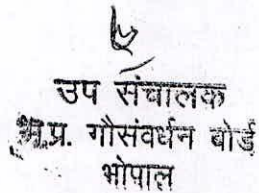 उप संचालक
म.प्र. गौसंवर्धन बोर्ड
भोपाल